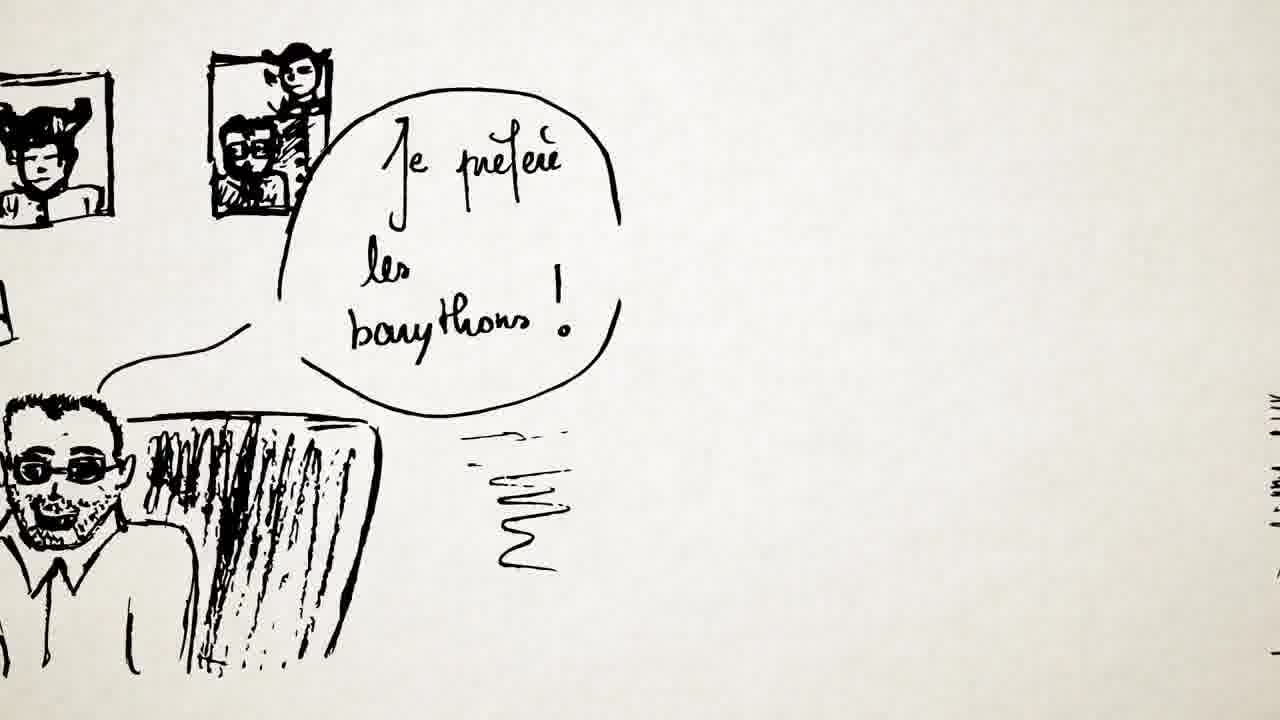 Je préfère
les
barythons !